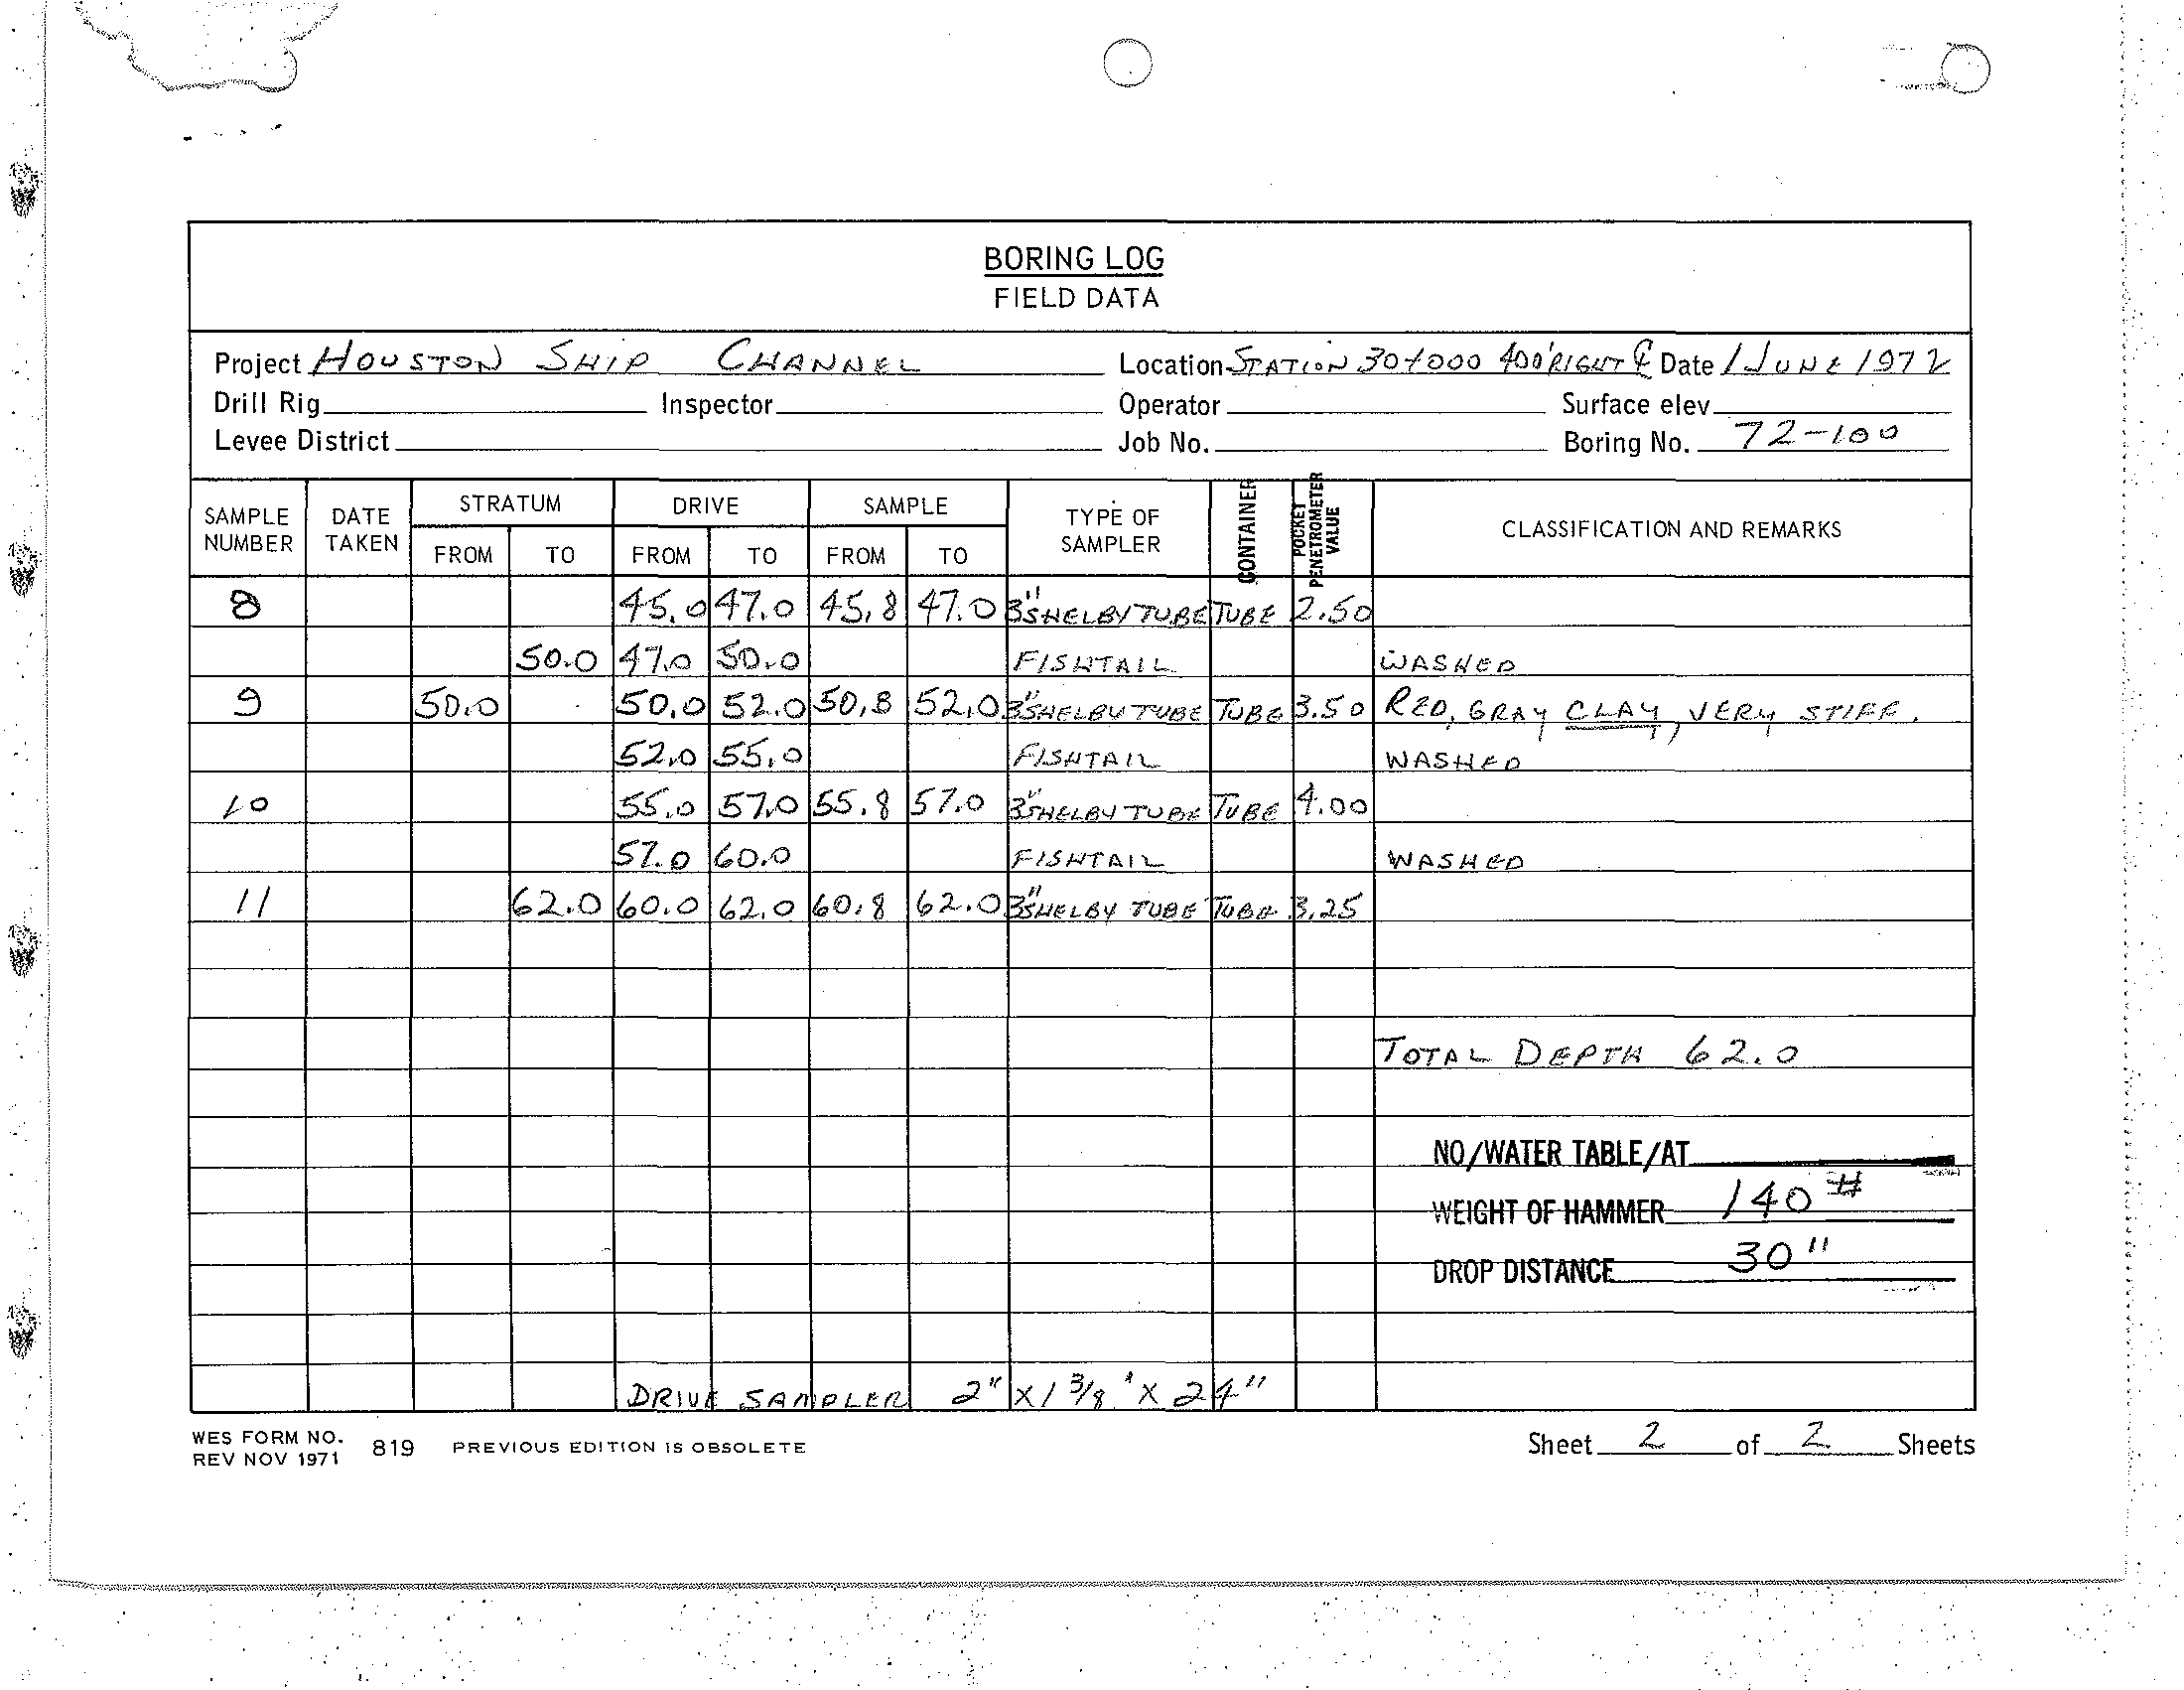 BORING LOG
FIELD DATA
Project HOUSTON SHIP CHANNEL Location STATION 30+000 400' RIGHT ℄ Date 1 JUNE 1972
Drill Rig Inspector Operator Surface elev.
Levee District Job No. Boring No. 72-100
SAMPLE NUMBER DATE TAKEN STRATUM FROM TO DRIVE FROM TO SAMPLE FROM TO TYPE OF SAMPLER CONTAINER POCKET PENETROMETER VALUE CLASSIFICATION AND REMARKS
8 45.0 47.0 45.8 47.0 3" SHELBY TUBE TUBE 2.50
50.0 47.0 50.0 FISHTAIL WASHED
9 50.0 50.0 52.0 50.8 52.0 3" SHELBY TUBE TUBE 3.50 RED, GRAY CLAY, VERY STIFF.
52.0 55.0 FISHTAIL WASHED
10 55.0 57.0 55.8 57.0 3" SHELBY TUBE TUBE 4.00
57.0 60.0 FISHTAIL WASHED
11 62.0 60.0 62.0 60.8 62.0 3" SHELBY TUBE TUBE 3.25
TOTAL DEPTH 62.0
NO/WATER TABLE/AT
WEIGHT OF HAMMER 140 #
DROP DISTANCE 30"
DRIVE SAMPLER 2" X 1 3/8" X 24"
WES FORM NO. 819 PREVIOUS EDITION IS OBSOLETE Sheet 2 of 2 Sheets
REV NOV 1971